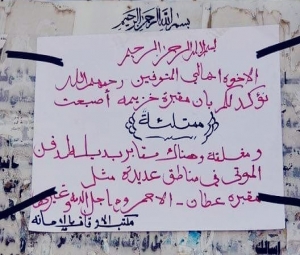 بسم الله الرحمن الرحيم
بسم الله الرحمن الرحيم
الإخوة اهالي المتوفين رحمهم الله
نؤكد لكم بان مقبرة خزيمه أصبحت
ممتلئة
ومغلقة وهناك مقابر بديله لدفن
الموتى في مناطق عديدة مثل
مقبرة عطان - الاحمر وماجل الدمو غيرها
مكتب الاوقاف بالامانه